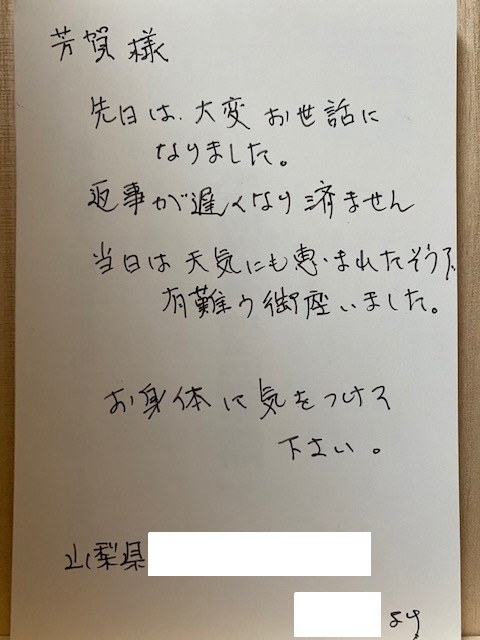 芳賀様
先日は、大変お世話に
なりました。
返事が遅くなり済ません
当日は天気にも恵まれたそうで
有難う御座いました。
お身体に気をつけて
下さい。
山梨県
より